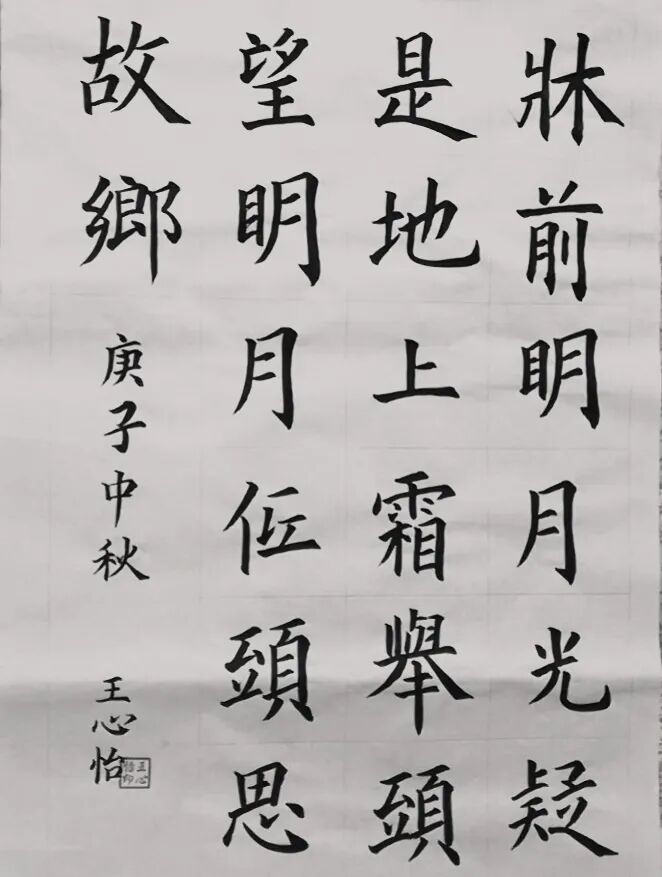 牀前明月光疑
是地上霜舉頭
望明月低頭思
故鄉
庚子中秋
王心怡
王心怡印